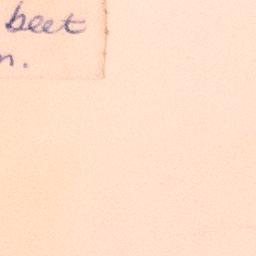 beet
n.